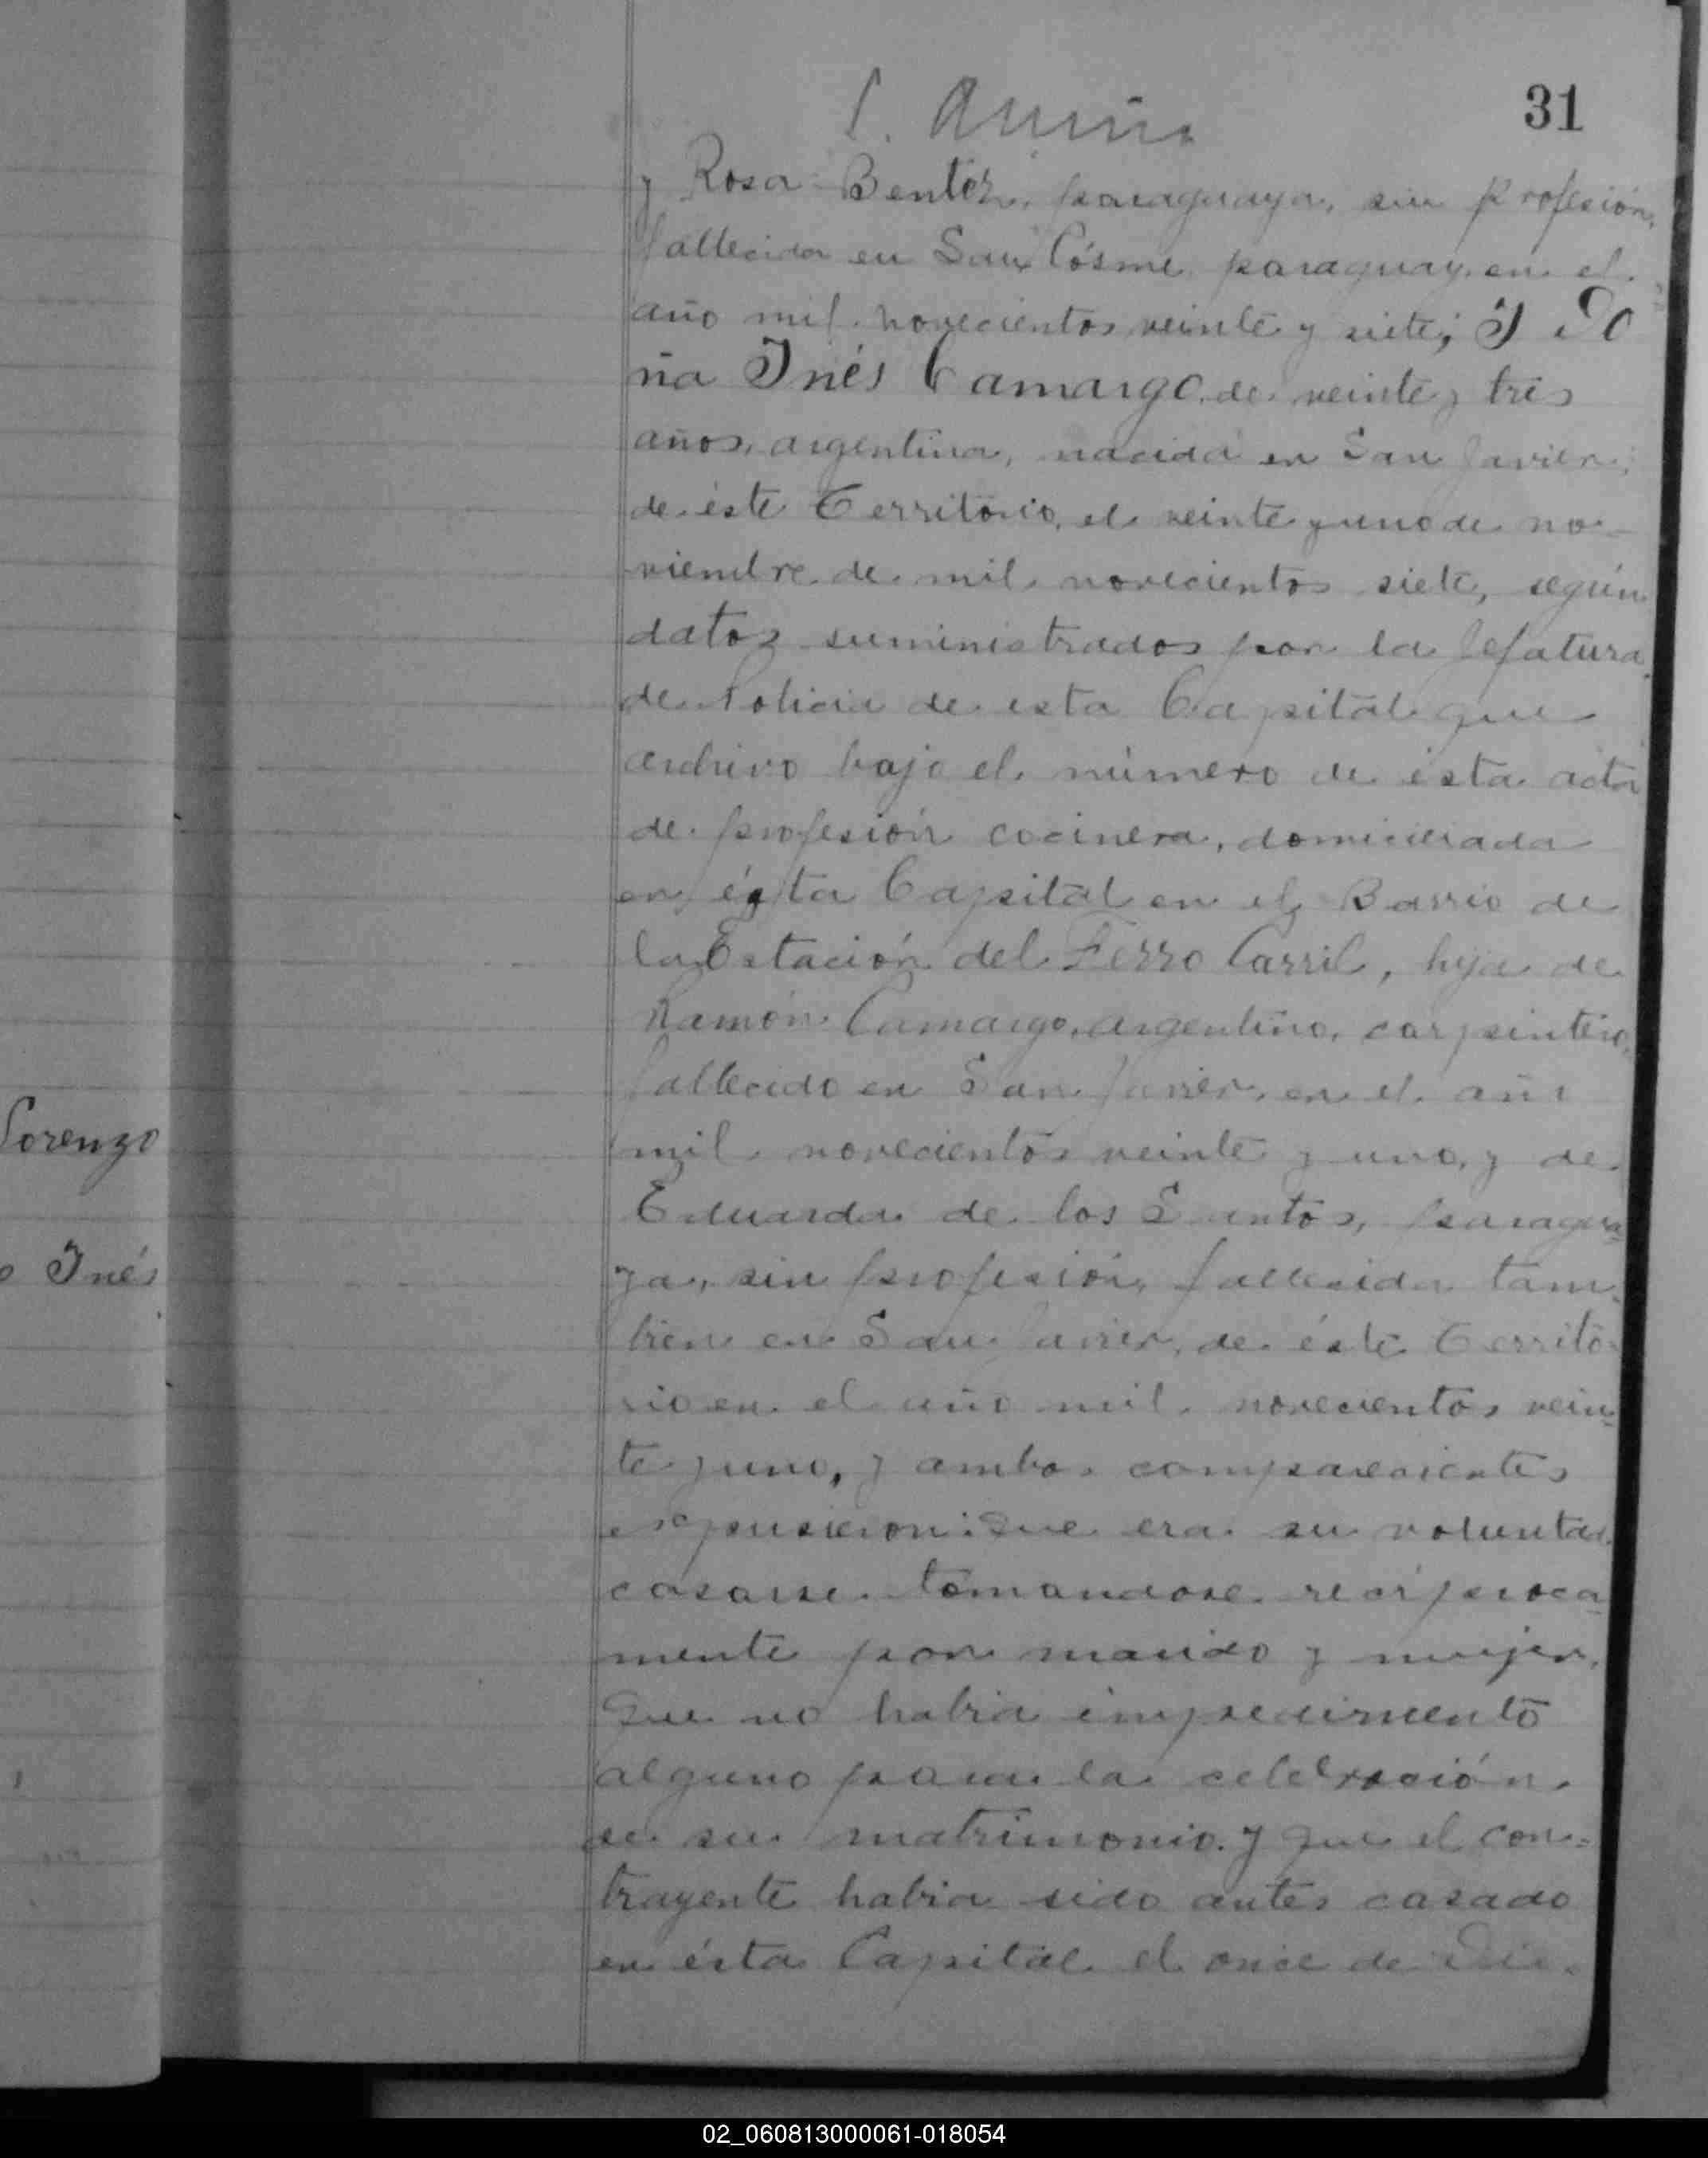 31
y Rosa Benter, paraguaya, sin profesión,
fallecida en San Cósme paraguay, en el
año mil novecientos veinte y siete; Y Do
ña Inés Camargo de veinte y tres
años, argentina, nacida en San Javier,
de éste Territorio, el veinte y uno de no-
viembre de mil novecientos siete, según
datos suministrados por la Jefatura
de Policia de esta Capital que
archivo bajo el número de ésta acta
de profesión cocinera, domiciliada
en ésta Capital en el Barrio de
la Estación del Ferro Carril, hija de
Ramón Camargo, argentino, carpintero,
fallecido en San Javier, en el año
mil novecientos veinte y uno, y de
Eduarda de los Santos, paragua-
ya, sin profesión, fallecida tam-
bien en San Javier, de éste Territo-
rio en el año mil novecientos vein-
te y uno, y ambos comparecientes
expusieron: Que era su voluntad
casarse tomandose recíproca-
mente por marido y mujer,
Que no habia impedimento
alguno para la celebración
de su matrimonio. y que el con-
trayente habia sido antes casado
en ésta Capital el once de Dic-
Lorenzo
o Inés
02_060813000061-018054